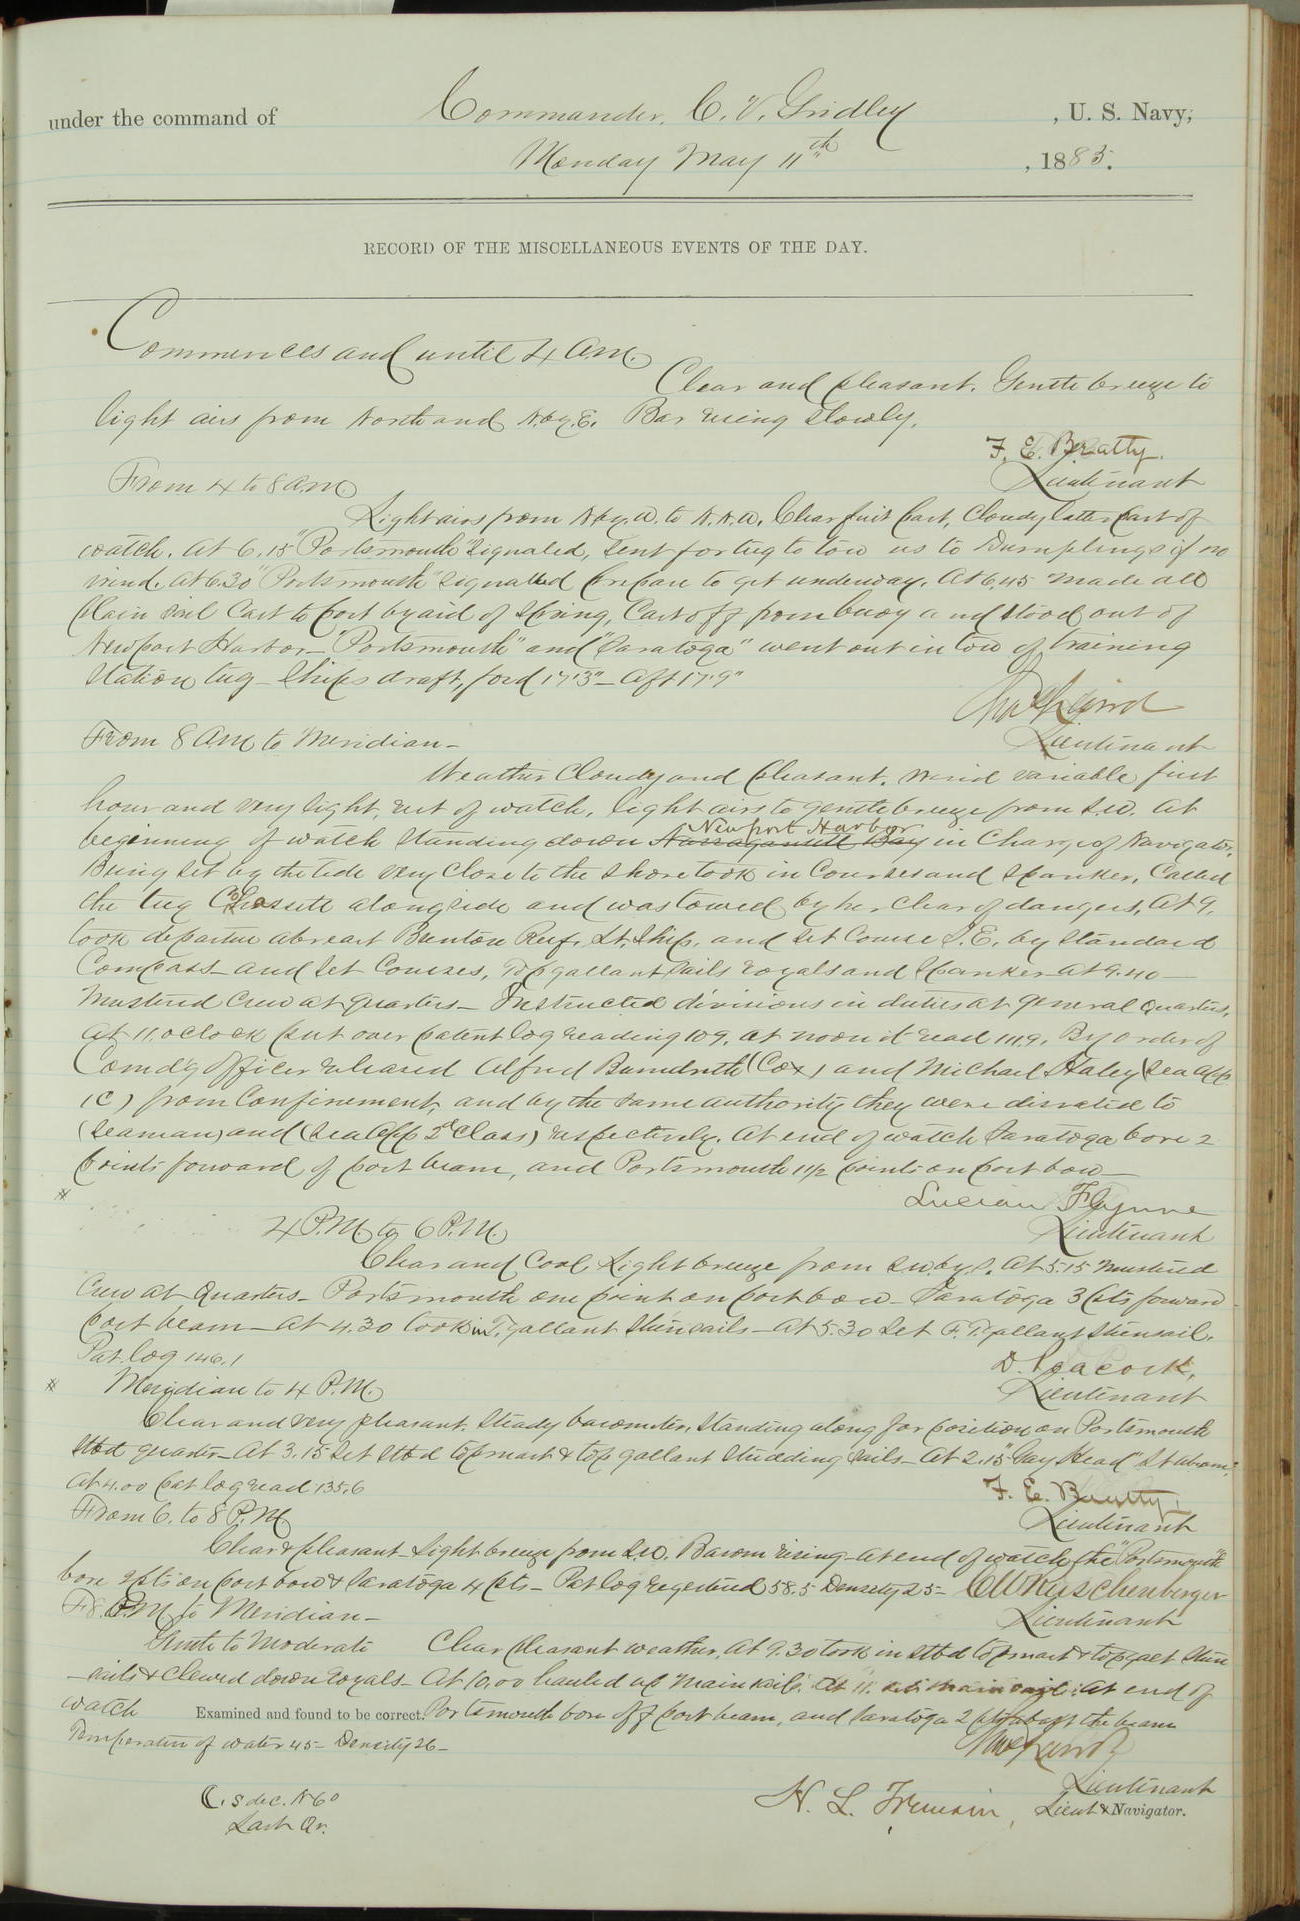 under the command of Commander. C. V. Gridley , U. S. Navy,
Monday May 11th , 1885.
RECORD OF THE MISCELLANEOUS EVENTS OF THE DAY.
Commences and until 4 A.M.
Clear and pleasant. Gentle breeze to
light airs from North and N.by.E. Bar rising slowly.
F. E. Beatty.
Lieutenant
From 4 to 8 A.M.
Light airs from N.by.W. to N.N.W. Clear first part, Cloudy latter part of
watch. At 6.15 "Portsmouth" signaled, sent for tug to tow us to Dumplings if no
wind. At 6.30 "Portsmouth" signalled prepare to get underway. At 6.45 made all
plain sail Cast to port by aid of spring, Cast off from buoy and stood out of
Newport Harbor - "Portsmouth" and "Saratoga" went out in tow of training
Station tug - Ships draft, for'd 17'3" - Aft 17'9"
Lieutenant
From 8 A.M. to Meridian -
Weather Cloudy and pleasant. Wind variable, first
hour and very light, rest of watch, light airs to gentle breeze from S.W. At
beginning of watch standing down Narragansett Bay Newport Harbor in Charge of Navigator.
Being set by the tide very close to the shore took in Courses and Spanker. Called
the tug alongside and was towed by her clear of dangers. At 9,
took departure abreast Brenton Reef. Lt. Ship, and set Course S.E. by Standard
Compass - and set Courses, Topgallant sails royals and Spanker - at 9.40 -
Mustered Crew at quarters - Instructed divisions in duties at general quarters.
At 11. oclock put over patent log reading 109. At noon it read 111.9. By order of
Comd'g Officer released Alfred (Cox) and Michael Haley (Sea App
1C) from Confinement, and by the same authority they were disrated to
(Seaman) and (Sea App 2d Class) respectively. At end of watch Saratoga bore 2
points forward of port beam, and Portsmouth 1 1/2 points on port bow -
Lucien Flynne
Lieutenant
4 P.M. to 6 P.M.
Clear and Cool. Light breeze from S.W. by S. At 5.15 mustered
Crew at Quarters - Portsmouth one point on port bow - Saratoga 3 pts forward
port beam - At 4.30 took in T.gallant stun'sails - At 5.30 set F. T.gallant stunsail.
Pat. log 146.1
D. Peacock,
Lieutenant
Meridian to 4 P.M.
Clear and very pleasant. Steady barometer. Standing along for position on Portsmouth
Stbd quarter - At 3.15 set Stbd topmast & top gallant studding sails - At 2.15 "Gay Head" Lt abeam.
At 4.00 pat log read 135.6
F. E. Beatty,
Lieutenant
From 6. to 8 P.M
Clear & pleasant - Light breeze from S.W. Barom rising - At end of watch the "Portsmouth"
bore 2 pts on port bow & Saratoga 4 pts - Pat log registered 58.5 Density 25 - C W Ruschenberger
Lieutenant
F 8. P.M. to Meridian -
Gentle to Moderate Clear pleasant weather. At 9.30 took in stbd topmast & topgalt stun
- sails & clewed down royals - At 10.00 hauled up Mainsail. At 11. set main sail. At end of
watch Portsmouth bore off port beam, and Saratoga 2 pts abaft the beam
Examined and found to be correct.
Temperature of water 45 - Density 26 -
Lieutenant
☾. S dec. N 6°
Last Qr.
Lieut & Navigator.